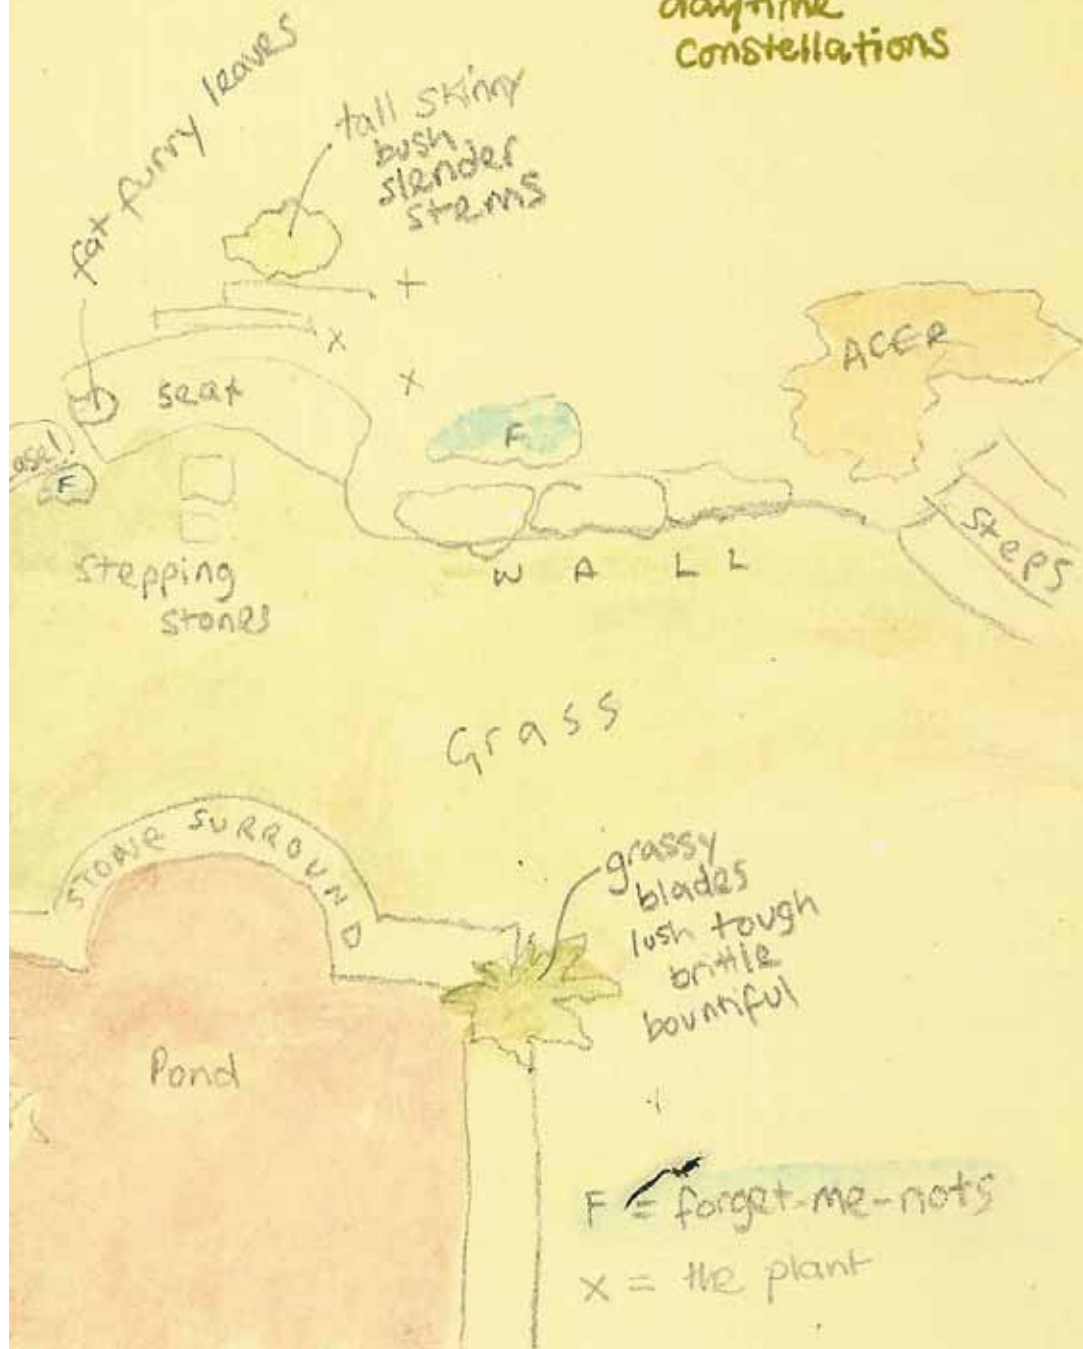 daytime
constellations
fat furry leaves
tall skinny
bush
slender
stems
+
x
x
ACER
seat
F
F
steps
WALL
stepping
stones
Grass
STONE SURROUND
grassy
blades
lush tough
brittle
bountiful
Pond
F = forget-me-nots
x = the plant